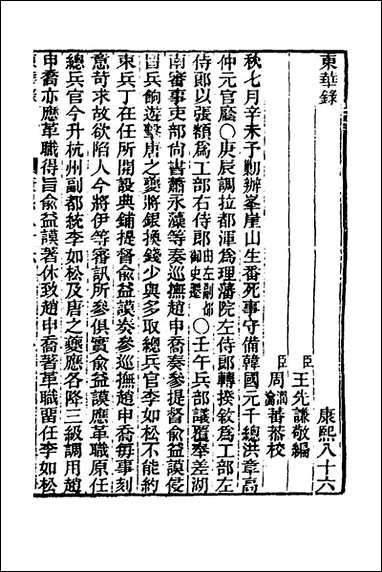 東華錄 康熙八十六
臣王先謙敬編
臣周潤瀹蕃恭校
秋七月辛未予勦辦峯崖山生番死事守備韓國元千總洪章高
仲元官廕〇庚辰調拉都渾爲理藩院左侍郎轉揆敘爲工部左
侍郎以張頫爲工部右侍郎由左副都御史遷〇壬午兵部議覆奉差湖
南審事吏部尚書蕭永藻等奏巡撫趙申喬奏參提督俞益謨侵
冒兵餉遊擊唐之夔將銀換錢少與多取總兵官李如松不能約
束兵丁在任所開設典鋪提督俞益謨奏參巡撫趙申喬每事刻
意苛求故欲陷人今將伊等審訊所參俱實俞益謨應革職原任
總兵官今升杭州副都統李如松及唐之夔應各降三級調用趙
申喬亦應革職得旨俞益謨著休致趙申喬著革職留任李如松